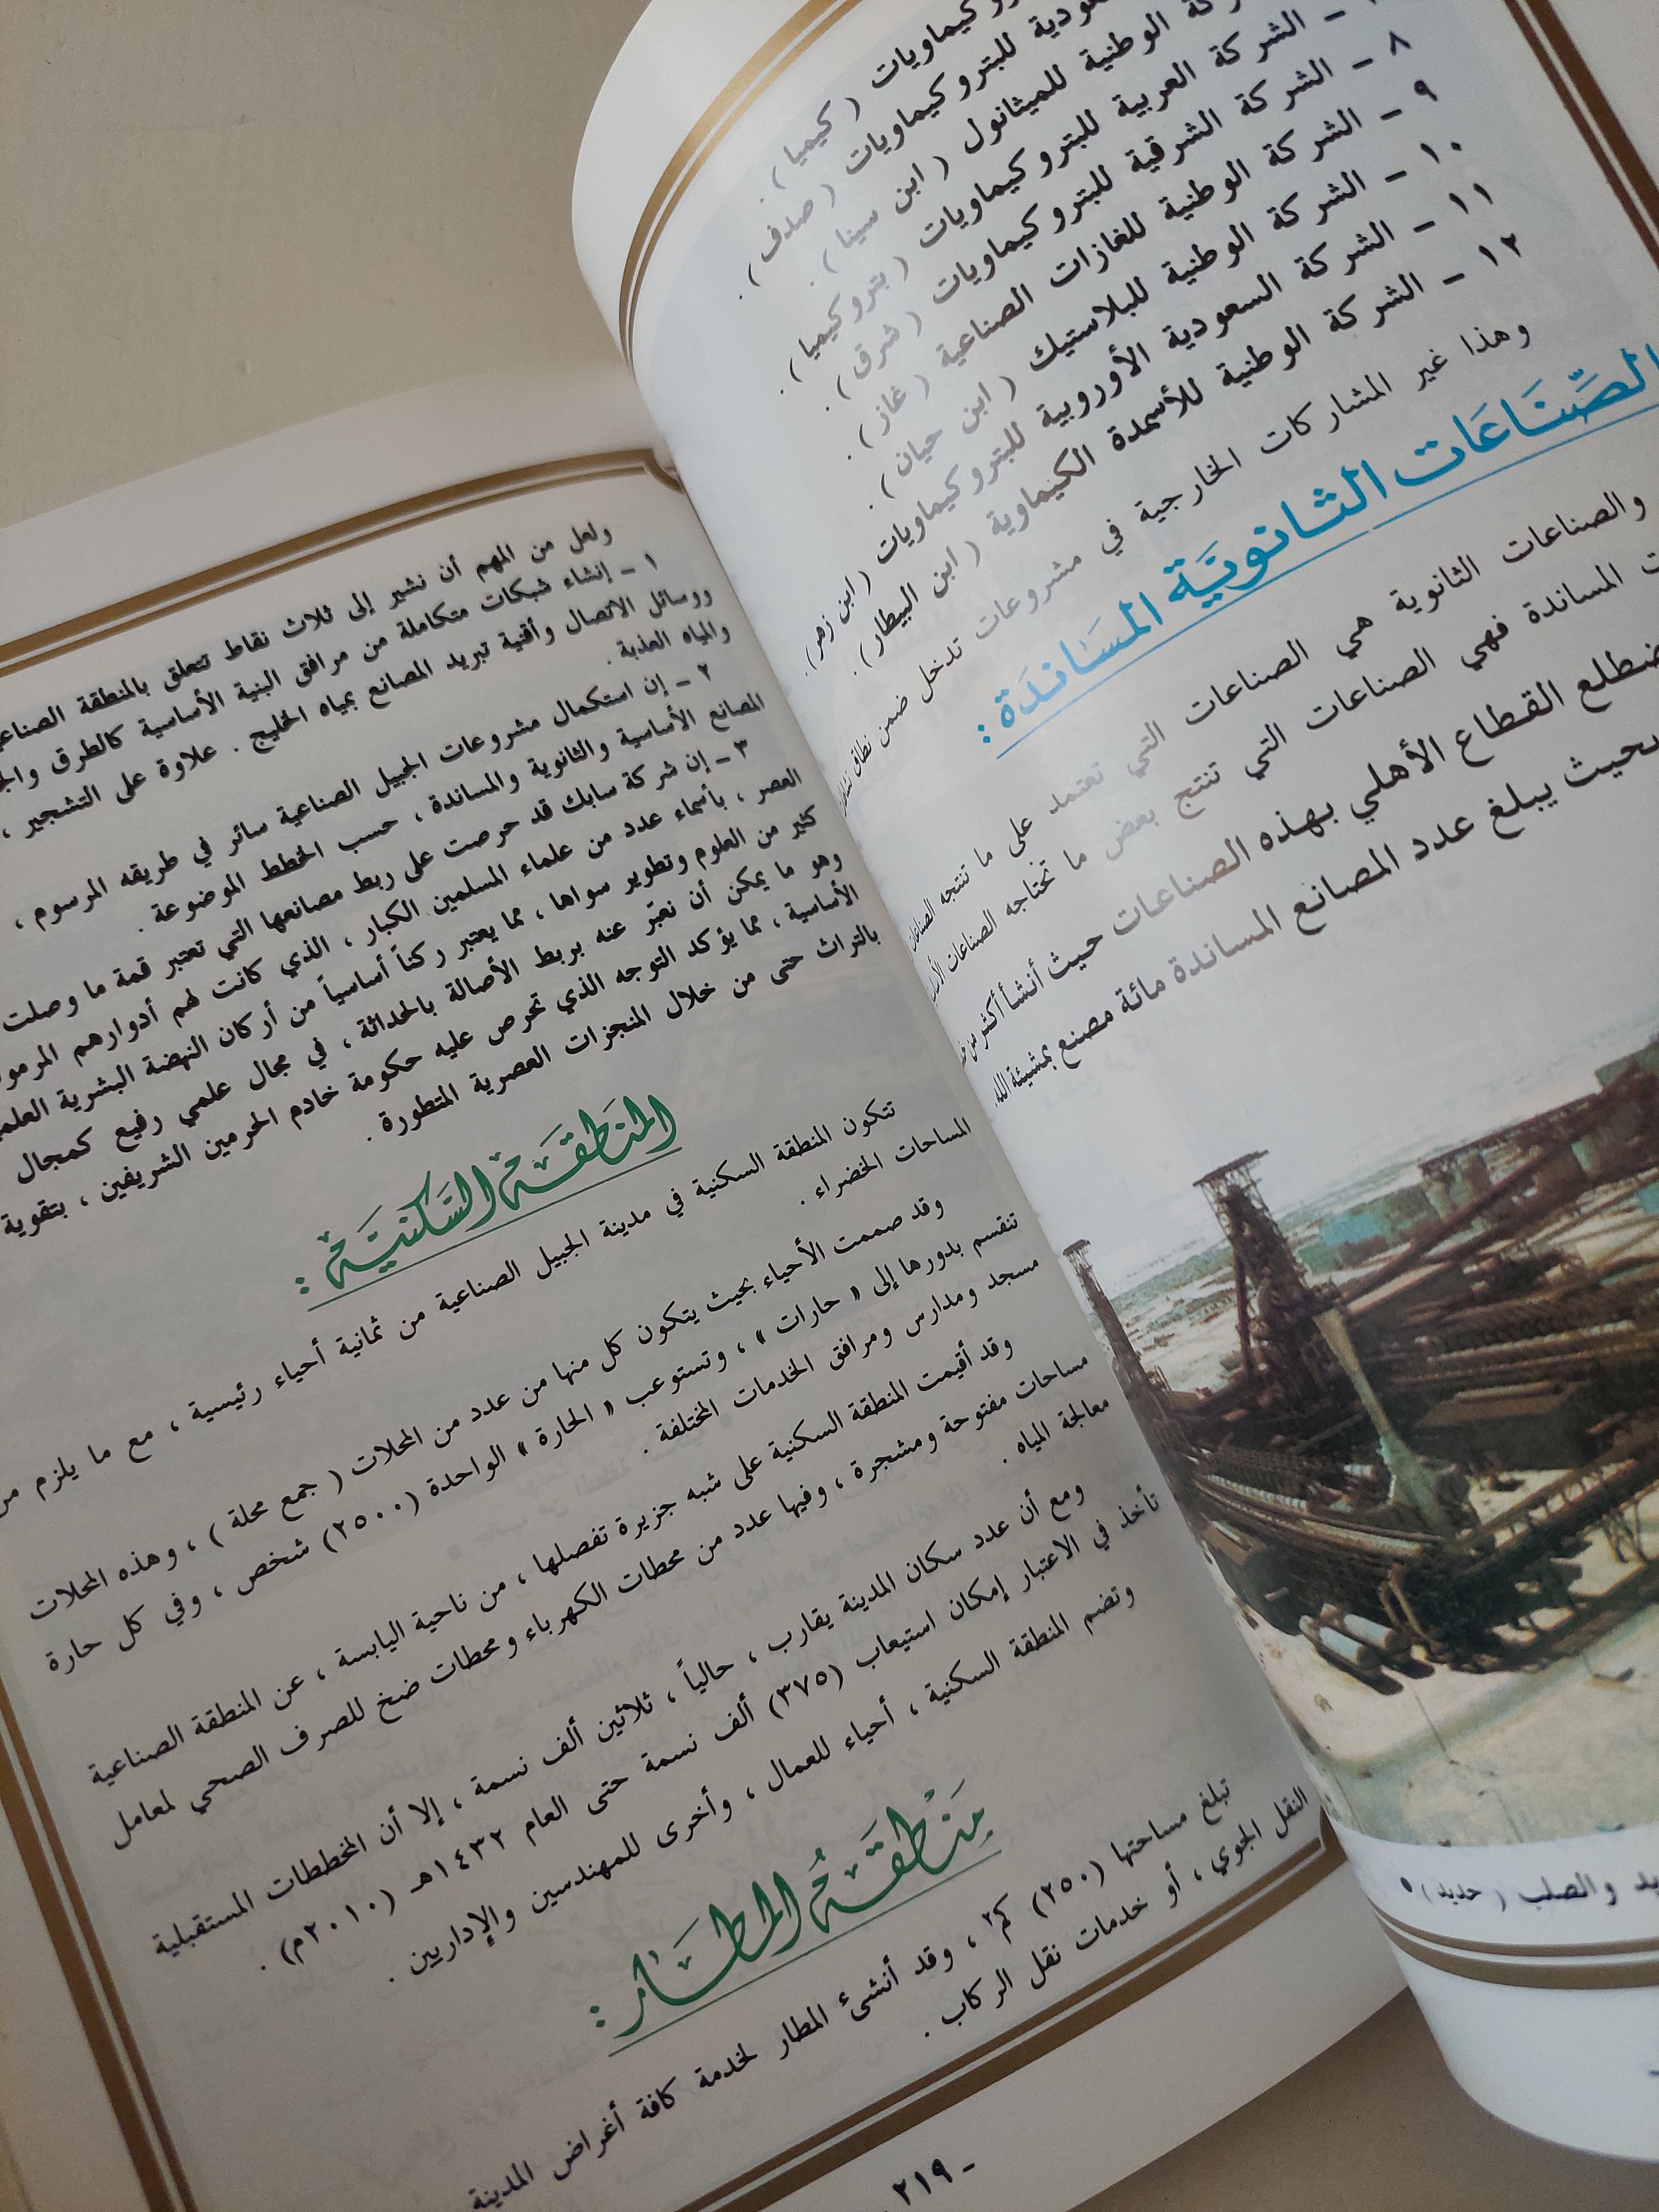 كيماويات ( كيميا ) .
للبتروكيماويات ( صدف ) .
الوطنية للميثانول ( ابن سينا ) .
- الشركة العربية للبتروكيماويات ( بتروكيميا ) .
٨ - الشركة الشرقية للبتروكيماويات ( شرق ) .
٩ - الشركة الوطنية للغازات الصناعية ( غاز ) .
١٠ - الشركة الوطنية للبلاستيك ( ابن حيان ) .
١١ - الشركة السعودية الأوروبية للبتروكيماويات ( ابن زهر ) .
١٢ - الشركة الوطنية للأسمدة الكيماوية ( ابن البيطار ) .
وهذا غير المشاركات الخارجية في مشروعات تدخل ضمن نطاق
الصِّنَاعَات الثانويَّة المسَاندَة :
والصناعات الثانوية هي الصناعات التي تعتمد على ما تنتجه الصناعات
المساندة فهي الصناعات التي تنتج بعض ما تحتاجه الصناعات
القطاع الأهلي بهذه الصناعات حيث أنشأ أكثر من
بحيث يبلغ عدد المصانع المساندة مائة مصنع بمشيئة الله
والصلب ( حديد ) •
ولعل من المهم أن نشير إلى ثلاث نقاط تتعلق بالمنطقة
١ - إنشاء شبكات متكاملة من مرافق البنية الأساسية كالطرق
ووسائل الاتصال وأقنية تبريد المصانع بمياه الخليج . علاوة على التشجير ،
والمياه العذبة .
٢ - إن استكمال مشروعات الجبيل الصناعية سائر في طريقه المرسوم ،
المصانع الأساسية والثانوية والمساندة ، حسب الخطط الموضوعة .
٣ - إن شركة سابك قد حرصت على ربط مصانعها التي تعتبر قمة ما وصلت
العصر ، بأسماء عدد من علماء المسلمين الكبار ، الذي كانت لهم أدوارهم
كثير من العلوم وتطوير سواها ، مما يعتبر ركناً أساسياً من أركان النهضة البشرية
وهو ما يمكن أن نعبّر عنه بربط الأصالة بالحداثة ، في مجال علمي رفيع كمجال
الأساسية ، مما يؤكد التوجه الذي تحرص عليه حكومة خادم الحرمين الشريفين ، بتقوية
بالتراث حتى من خلال المنجزات العصرية المتطورة .
المنَطقَة السَّكنيَّة :
تتكون المنطقة السكنية في مدينة الجبيل الصناعية من ثمانية أحياء رئيسية ، مع ما يلزم من
المساحات الخضراء .
وقد صممت الأحياء بحيث يتكون كل منها من عدد من المحلات ( جمع محلة ) ، وهذه المحلات
تنقسم بدورها إلى « حارات » ، وتستوعب « الحارة » الواحدة (٢٥٠٠) شخص ، وفي كل حارة
مسجد ومدارس ومرافق الخدمات المختلفة .
وقد أقيمت المنطقة السكنية على شبه جزيرة تفصلها ، من ناحية اليابسة ، عن المنطقة الصناعية
مساحات مفتوحة ومشجرة ، وفيها عدد من محطات الكهرباء ومحطات ضخ للصرف الصحي لمعامل
معالجة المياه .
ومع أن عدد سكان المدينة يقارب ، حالياً ، ثلاثين ألف نسمة ، إلا أن المخططات المستقبلية
تأخذ في الاعتبار إمكان استيعاب (٣٧٥) ألف نسمة حتى العام ١٤٣٢هـ (٢٠١٠م) .
وتضم المنطقة السكنية ، أحياء للعمال ، وأخرى للمهندسين والإداريين .
مِنَطْقَةُ المطَار :
تبلغ مساحتها (٢٥٠) كم٢ ، وقد أنشئ المطار لخدمة كافة أغراض المدينة
النقل الجوي ، أو خدمات نقل الركاب .
- ٢١٩